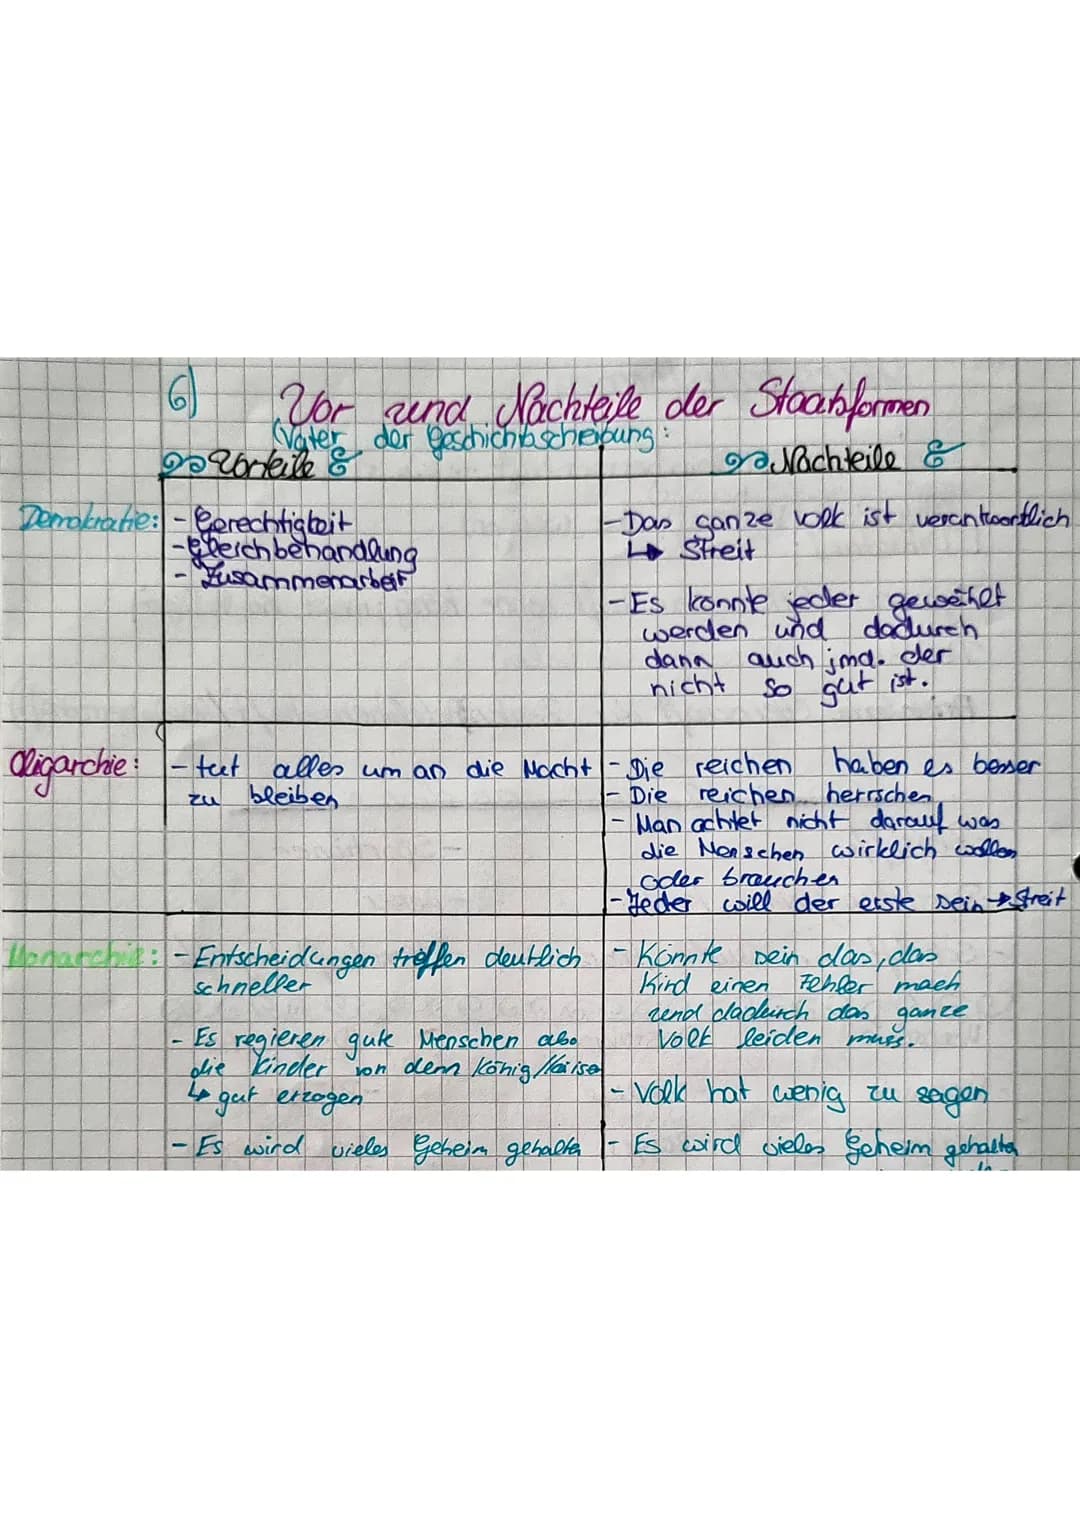 6) Vor und Nachteile der Staatsformen
(Vater der Geschichtsschreibung:
Vorteile
Nachteile
Demokratie:
- Gerechtigkeit
- Gleichbehandlung
- Zusammenarbeit
- Das ganze Volk ist verantwortlich
↳ Streit
- Es könnte jeder gewählt
werden und dadurch
dann auch jmd. der
nicht so gut ist.
Oligarchie:
- tut alles um an die Macht
zu bleiben
- Die reichen haben es besser
- Die reichen herrschen
- Man achtet nicht darauf was
die Menschen wirklich wollen
oder brauchen
- Jeder will der erste sein → Streit
Monarchie:
- Entscheidungen treffen deutlich
schneller
- Es regieren gute Menschen also
die Kinder von denn König/Kaiser
↳ gut erzogen
- Es wird vieles Geheim gehalten
- Könnte sein das, das
Kind einen Fehler mach
und dadurch das ganze
Volk leiden muss.
- Volk hat wenig zu sagen
- Es wird vieles Geheim gehalten